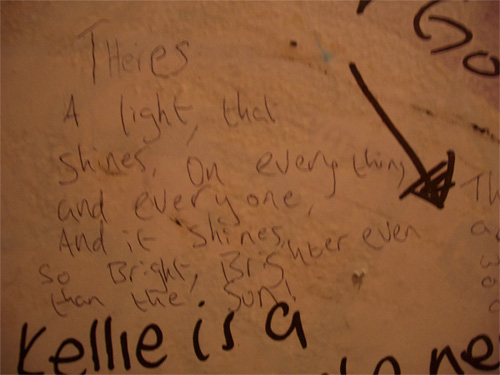 Theres
A light, that
Shines, On every thing
and everyone,
And it shines,
So Bright, Brighter even
than the Sun!
Kellie is a